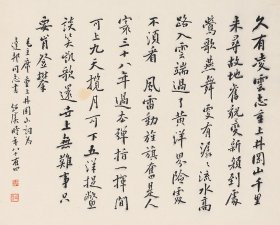 久有凌雲志重上井岡山千里
来尋故地舊貌變新顏到處
鶯歌燕舞更有潺〻流水高
路入雲端過了黄洋界險處
不須看 風雷動旌旗奮是人
寰三十八年過去彈指一揮間
可上九天攬月可下五洋捉鱉
談笑凱歌還世上無難事只
要肯登攀
毛主席重上井岡山詞為
同志書 時年八十有四